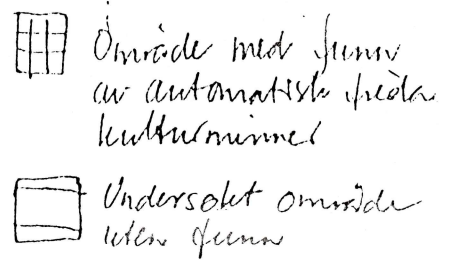 Område med funn
av automatisk freda
kulturminner
Undersøkt område
uten funn